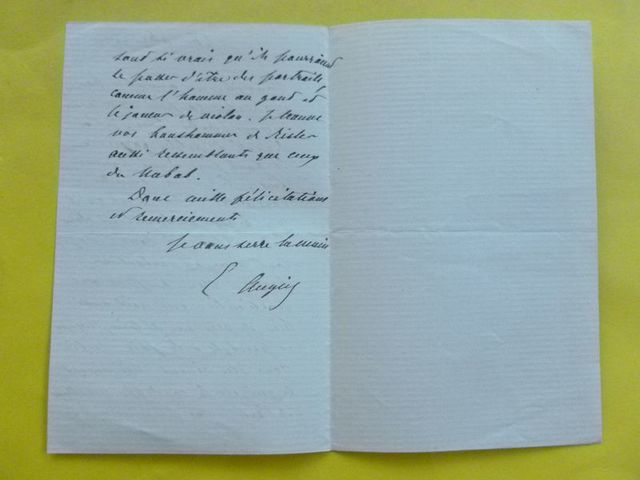 sont si vrais qu'ils pourraient
se passer d'être des portraits
comme l'homme au gand et
le joueur de violon. Je trouve
vos
aussi ressemblants que ceux
du Nabab.
Donc mille félicitations
et remerciements
Je vous serre la main
E Augier